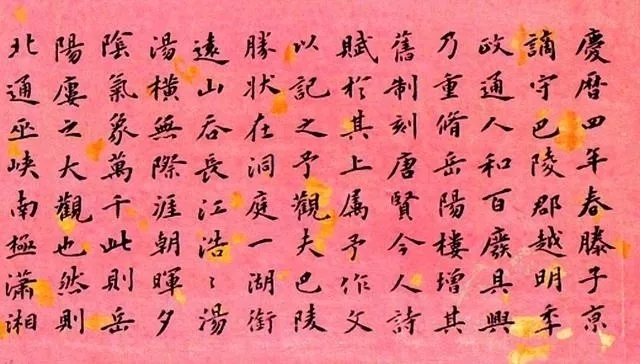 慶曆四年春滕子京
謫守巴陵郡越明年
政通人和百廢具興
乃重脩岳陽樓增其
舊制刻唐賢今人詩
賦於其上属予作文
以記之予觀夫巴陵
勝狀在洞庭一湖銜
遠山吞長江浩〻湯
湯橫無際涯朝暉夕
陰氣象萬千此則岳
陽廔之大觀也然則
北通巫峽南極瀟湘